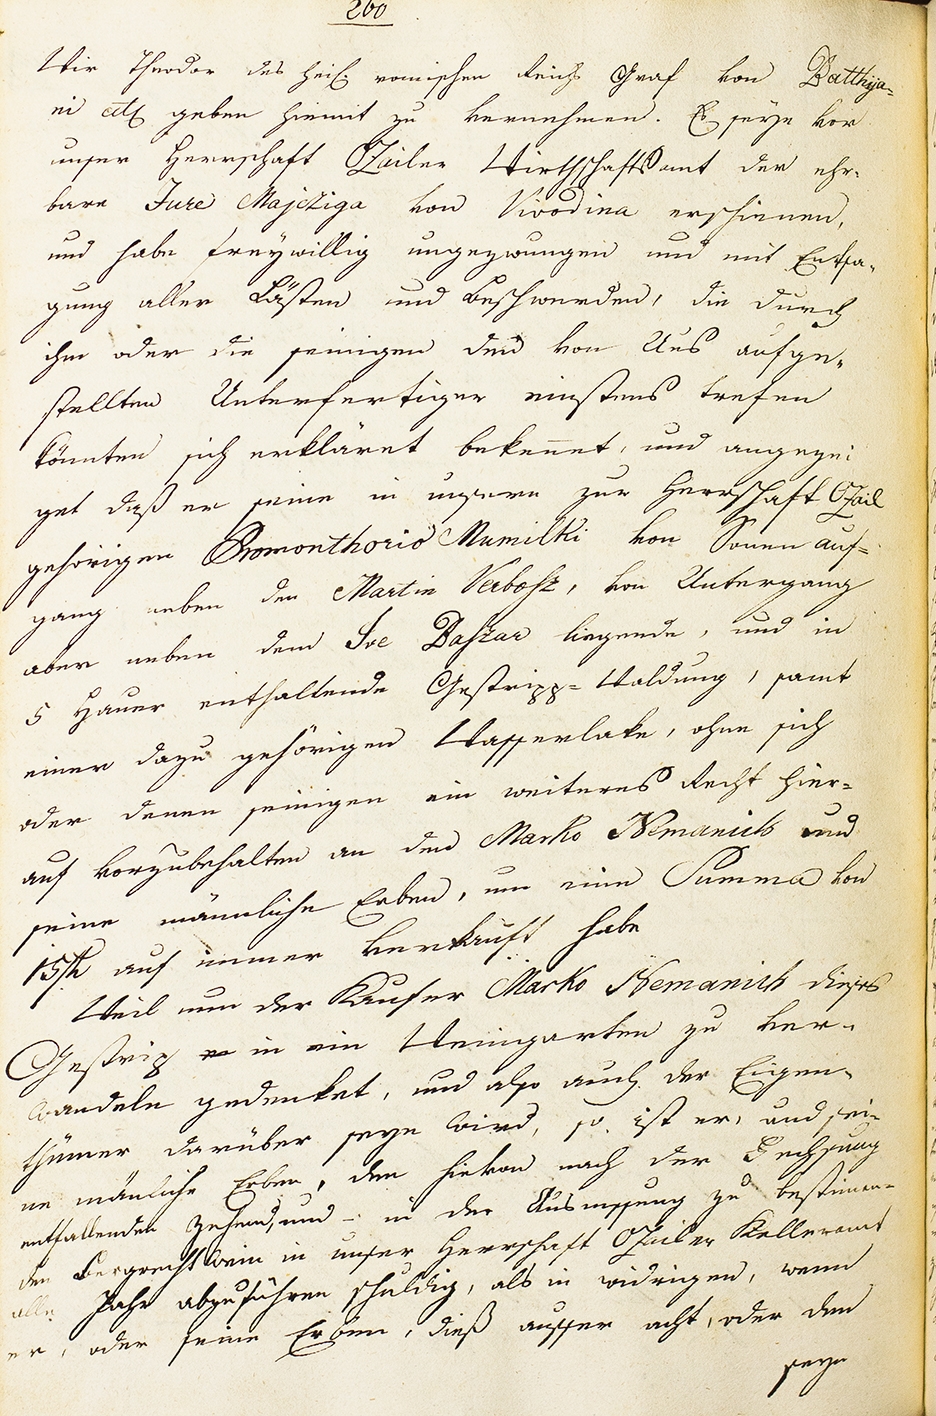 260
Wir Theodor des heil. romischen Reichs Graf von Batthya-
ni geben hiemit zu vernehmen. Es seye vor
unser Herrschaft Ozailer Wirthschaftsamt der ehr-
bare Jure Majcziga von Vivodina erschienen,
und habe freywillig ungezwungen und mit Entsa-
gung aller Lästen und Beschwerden, die durch
ihn oder die seinigen den von Uns aufge-
stellten Unterfertiger einstens trefen
könnten sich erkläret bekennet, und angezei
get daß er seine in unsern zur Herrschaft Ozail
gehörigen Promonthorio Mumilki von Sonen auf=
gang neben den Martin Verbosz, von Untergang
aber neben dem Ive Baszar liegende, und in
5 Hauer enthaltende Gestripp=Waldung, samt
einer dazu gehörigen Wasserlake, ohne sich
oder denen seinigen ein weiteres Recht hier=
auf vorzubehalten an den Marko Nemanich und
seine männliche Erben, um eine Summa von
15 auf immer verkauft habe
Weil nun der Kaufer Marko Nemanich dieses
Gestripp in ein Weingarten zu ver-
wandeln gedenket, und also auch der Eigen-
thümer darüber seyn wird, so ist er, und sei-
ne mänliche Erben, den hievon nach der Fechsung
entfallenden Zehend, und - in der Ausmessung zu bestimen=
den Bergrechtwein in unser Herrschaft Ozailer Kelleramt
alle Jahr abzuführen schuldig, als in widrigen, wenn
er, oder seine Erben, dieß ausser acht, oder den
seye